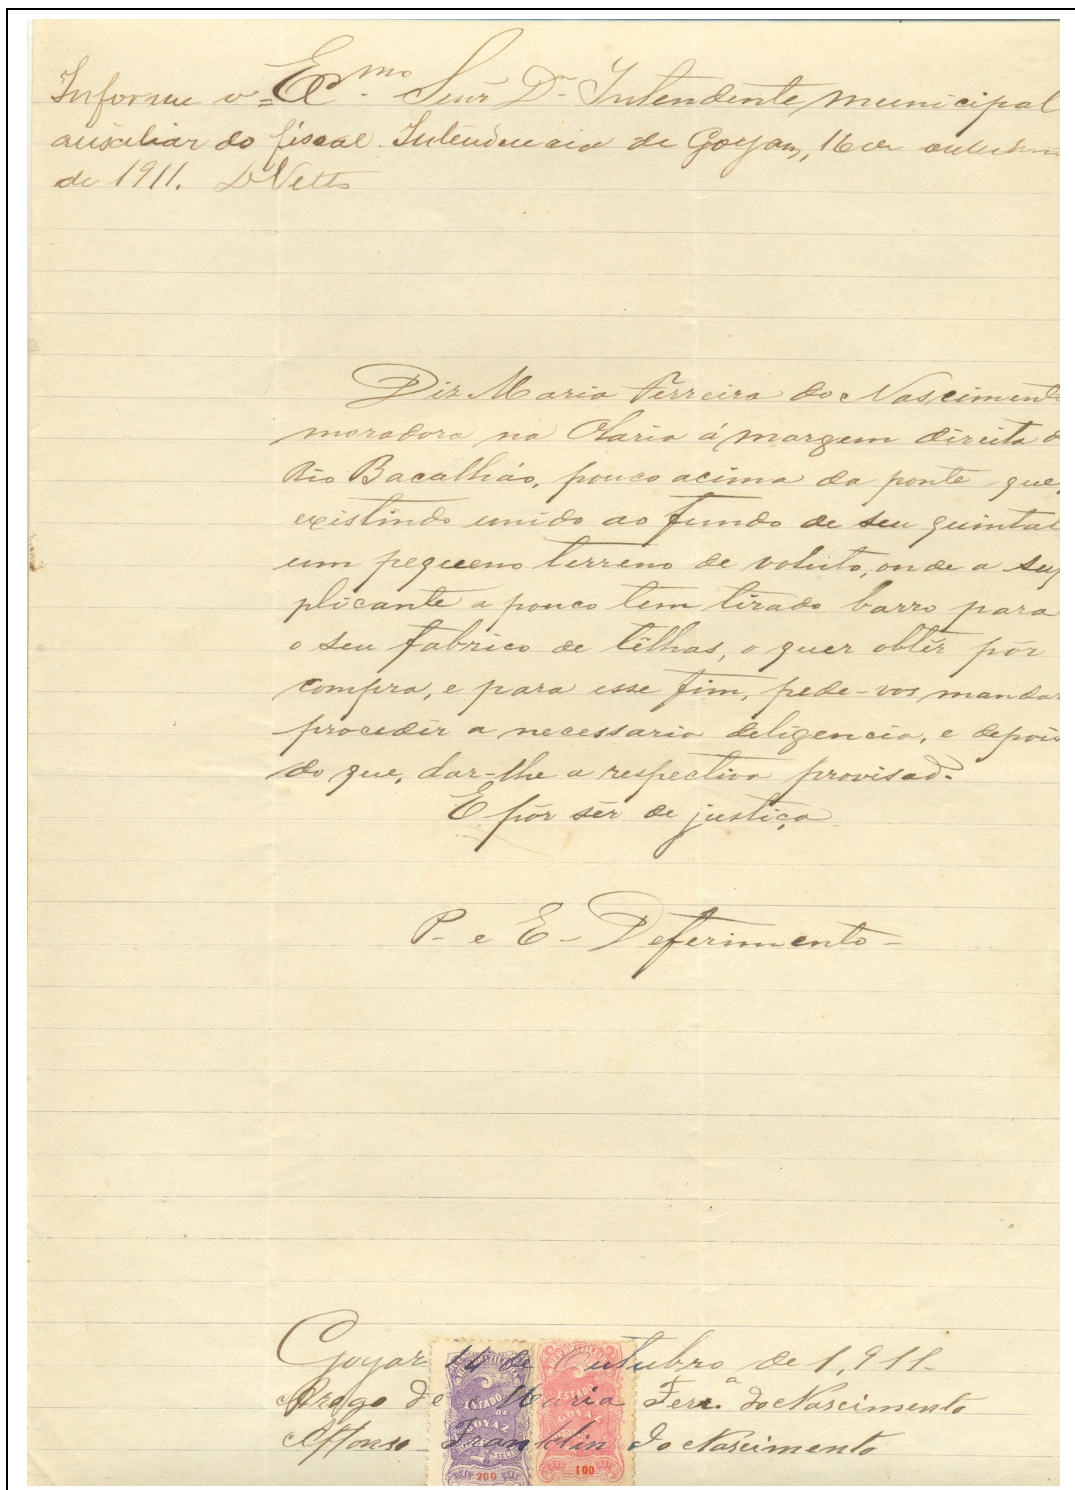 Informe o Ex.mo Senr Dr Intendente municipal
auxiliar do fiscal. Intendencia de Goyaz, 16 de outubro
de 1911. D Netto
Diz Maria Ferreira do Nasciment
moradora na Olaria á margem direita d
Rio Bacalháo, pouco acima da ponte que,
existindo unido ao fundo de seu quintal
um pequeno terreno de voluto, onde a sup
plicante a pouco tem tirado barro para
o seu fabrico de têlhas, o quer obtêr pôr
compra, e para esse fim, pede-vos mandar
procedêr a necessaria deligencia, e depois
do que, dar-lhe a respectiva provisaõ.
E pôr sêr de justiça
P. e E - Deferimento -
Goyaz 14 de Outubro de 1,911-
Arogo de Maria Ferr.a do Nascimento
Affonso Franklin do Nascimento
ESTADO DE GOYAZ
REIS 200 REIS
ESTADO DE GOYAZ
100